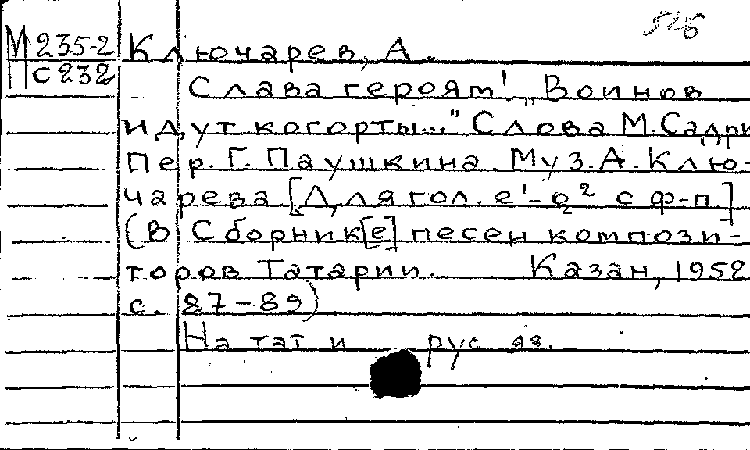 526
М 235-2
с 232
Ключарев, А.
Слава героям! „Воинов
идут когорты..." Слова М. Садри
Пер. Г. Паушкина. Муз. А. Клю-
чарева [Для гол. е¹-g² с ф-п.]
(В Сборник[е] песен компози-
торов Татарии. Казан, 1952
с. 87-89)
На тат и рус яз.